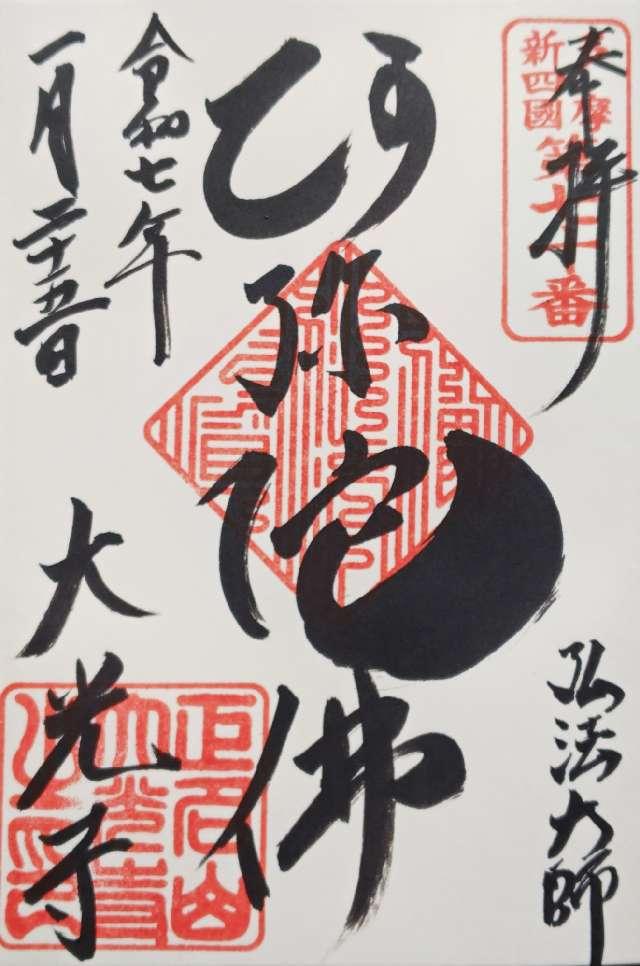 奉拝
新四國
第七十二番
弘法大師
阿弥陀佛
令和七年
一月二十五日
大光寺